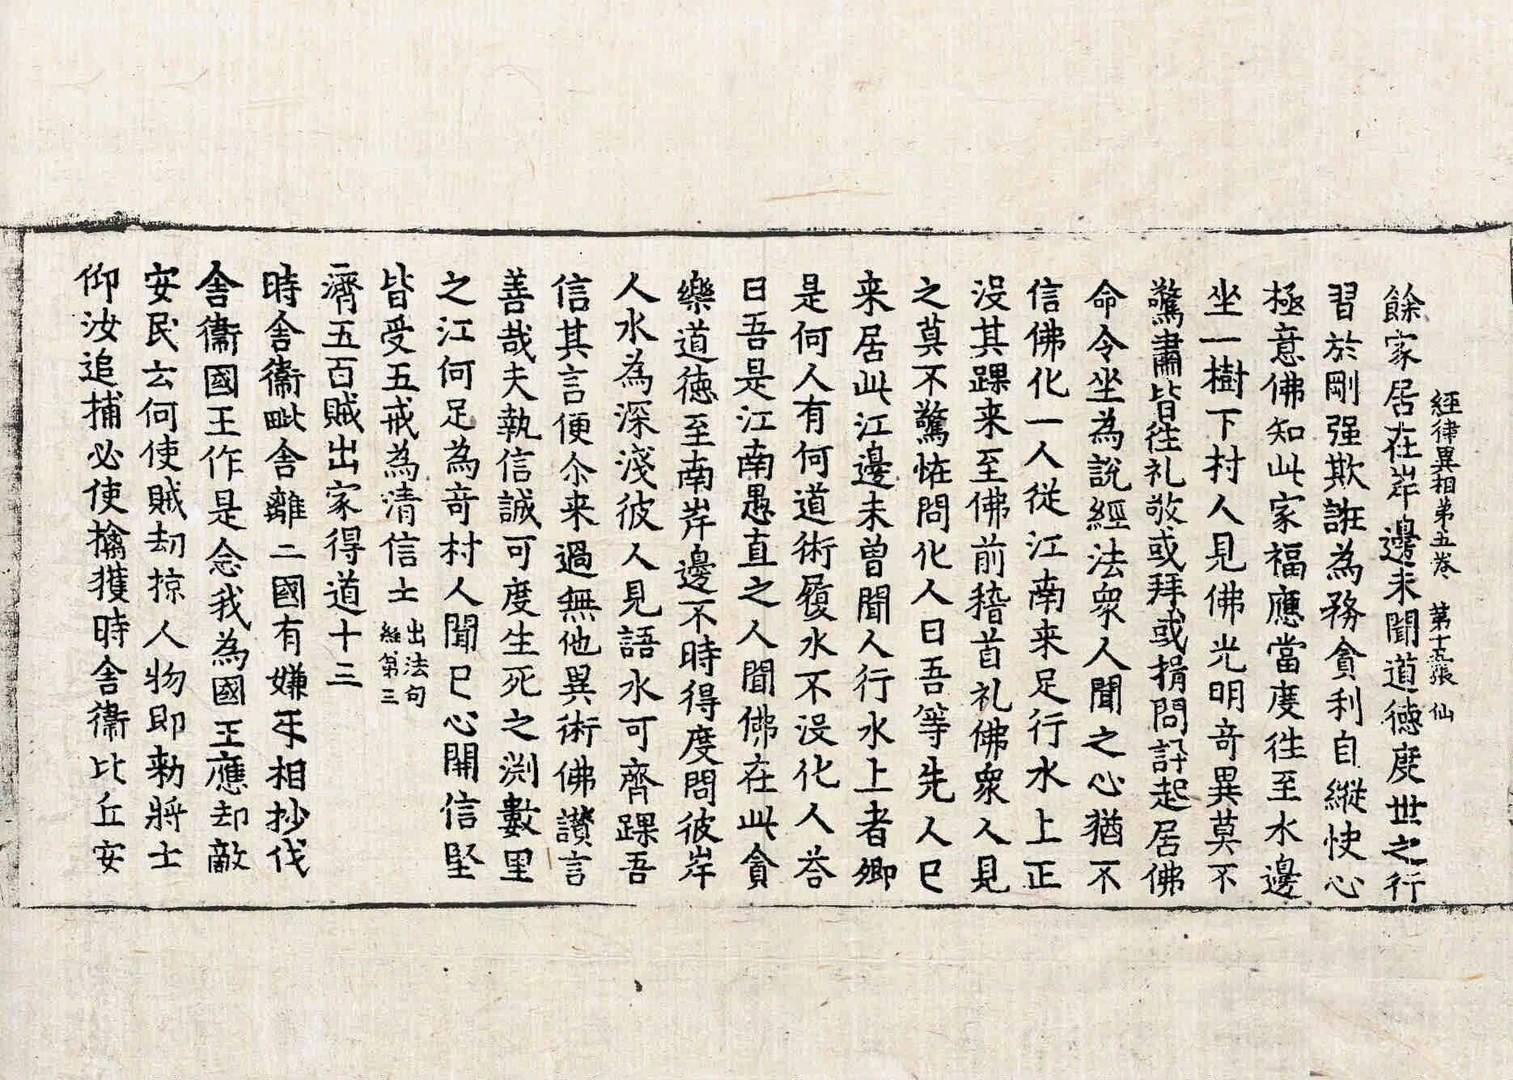 經律異相第五卷　第十五張　仙
餘家居在岸邊未聞道德度世之行
習於剛强欺誑為務貪利自縱快心
極意佛知此家福應當度徃至水邊
坐一樹下村人見佛光明奇異莫不
驚肅皆徃礼敬或拜或揖問訊起居佛
命令坐為說經法衆人聞之心猶不
信佛化一人從江南来足行水上正
没其踝来至佛前稽首礼佛衆人見
之莫不驚恠問化人曰吾等先人已
来居此江邊未曾聞人行水上者卿
是何人有何道術履水不没化人荅
曰吾是江南愚直之人聞佛在此貪
樂道德至南岸邊不時得度問彼岸
人水為深淺彼人見語水可齊踝吾
信其言便尒来過無他異術佛讃言
善哉夫執信誠可度生死之渕數里
之江何足為奇村人聞已心開信堅
皆受五戒為清信士出法句
經第三
濟五百賊出家得道十三
時舍衞毗舍離二國有嫌㸦相抄伐
舍衞國王作是念我為國王應却敵
安民云何使賊刧掠人物即勑將士
仰汝追捕必使擒獲時舍衞比丘安